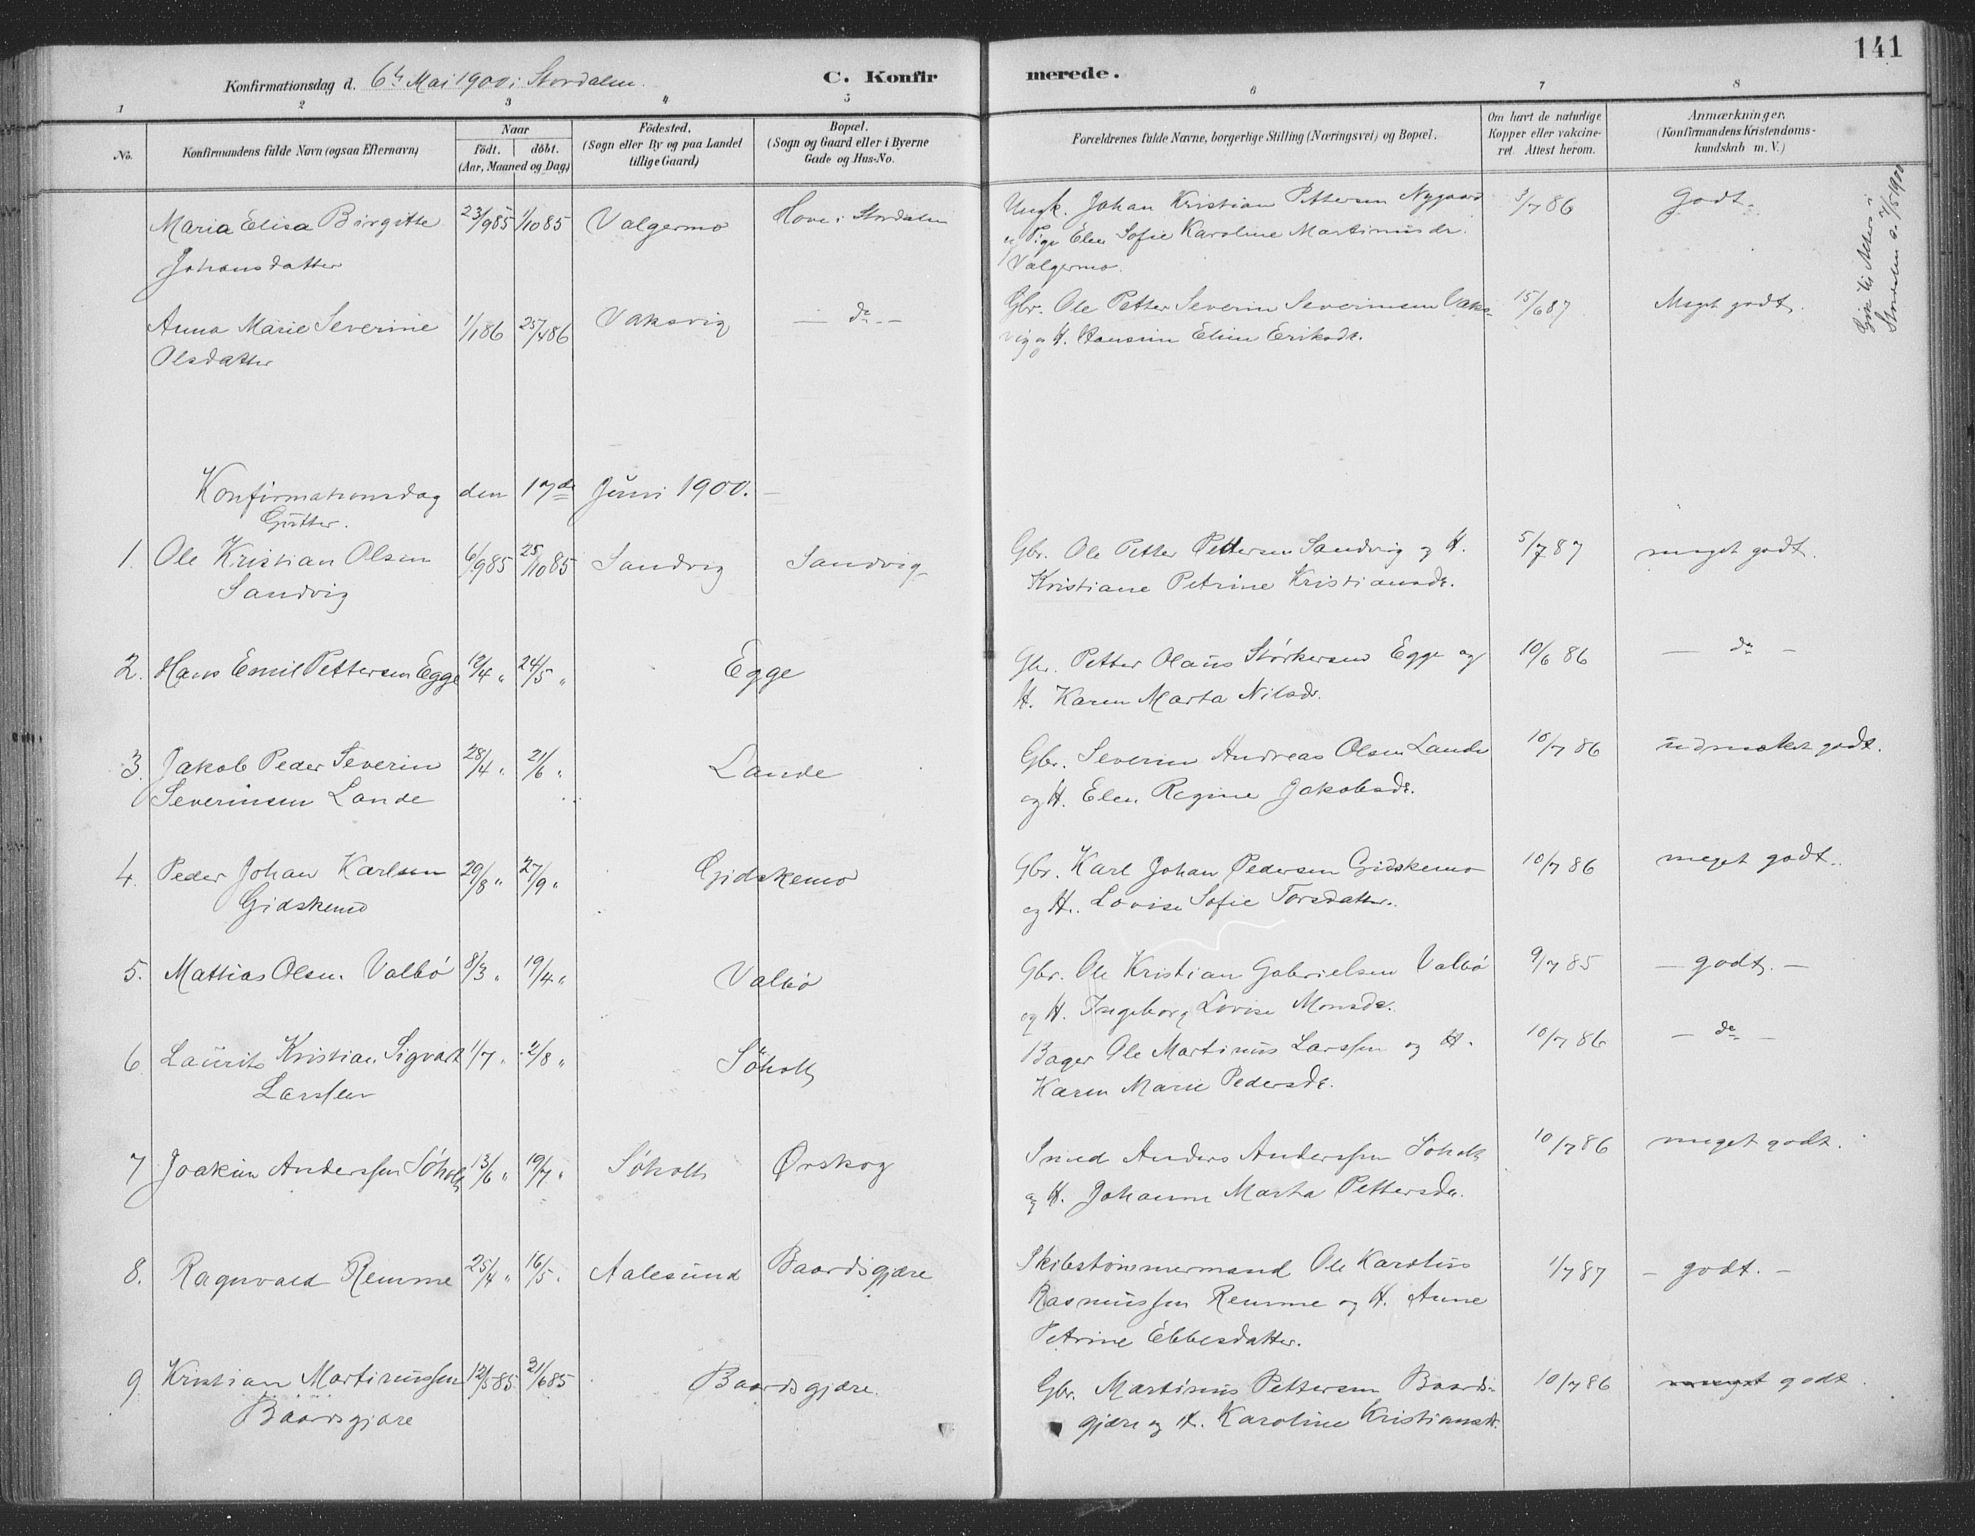 141
Konfirmationsdag d. 6te Mai 1900 i Stordalen.
C. Konfirmerede.
1 2 3 4 5 6 7 8
No.
Konfirmandens fulde Navn (ogsaa Efternavn)
Naar
födt. döbt.
(Aar, Maaned og Dag)
Födested.
(Sogn eller By og paa Landet
tillige Gaard)
Bopæl.
(Sogn og Gaard eller i Byerne
Gade og Hus-No.
Forældrenes fulde Navne, borgerlige Stilling (Næringsvei) og Bopæl.
Om havt de naturlige
Kopper eller vakcine-
ret. Attest herom.
Anmærkninger.
(Konfirmandens Kristendoms-
kundskab m. V.)
Maria Elisa Birgitte 23/9 85 1/10 85 Valgermo Hove i Stordalen Ungk. Johan Kristian Pettersen Nygaard 3/7 86 Godt.
Johansdatter
og Pige Elen Sofie Karoline Martinusdr.
Valgermo.
Gik til Alters i
Stordalen d. 7/5 1900
Anna Marie Severine 1/1 86 25/4 86 Vaksvig — do — Gbr. Ole Petter Severin Severinsen Vaks- 15/6 87 Meget godt.
Olsdatter
vig og H. Hansine Eline Eriksdr.
Konfirmationsdag den 17de Juni 1900.
Gutter.
1. Ole Kristian Olsen 6/9 85 25/10 85 Sandvig Sandvig Gbr. Ole Petter Pettersen Sandvig og H. 5/7 87 meget godt.
Sandvig
Kristiane Petrine Kristiansdr.
2. Hans Emil Pettersen Egge 12/4 " 24/5 " Egge Gbr. Petter Olaus Störkersen Egge og 10/6 86 — do —
H. Karen Marta Nilsdr.
3. Jakob Peder Severin 28/4 " 21/6 " Lande Gbr. Severin Andreas Olsen Lande 10/7 86 udmærket godt.
Severinsen Lande
og H. Elen Regine Jakobsdr.
4. Peder Johan Karlsen 29/8 " 27/9 " Gidskemo Gbr. Karl Johan Pedersen Gidskemo 10/7 86 meget godt.
Gidskemo
og H. Lovise Sofie Torsdatter.
5. Mattias Olsen Valbö 8/3 " 19/4 " Valbö Gbr. Ole Kristian Gabrielsen Valbö 9/7 85 — godt. —
og H. Ingeborg Lovise Monsdr.
6. Laurits Kristian Sigvart 1/7 " 2/8 " Söholt Bager Ole Martinus Larssen og H. 10/7 86 — do —
Larssen
Karen Marie Pedersdr.
7 Joakim Anderssen Søholt 13/6 " 19/7 " Søholt Ørskog Smed Anders Anderssen Søholt 10/7 86 meget godt.
og H. Johanne Marta Pettersdr.
8. Ragnvald Remme 25/4 " 16/5 " Aalesund Baardsgjære Skibstömmermand Ole Karolius 1/7 87 — godt. —
Rasmussen Remme og H. Anne
Petrine Ebbesdatter.
9. Kristian Martinussen 12/5 85 21/6 85 Baardsgjære. Gbr. Martinus Pettersen Baards- 10/7 86 meget godt.
Baardsgjære
gjære og H. Karoline Kristiansdr.